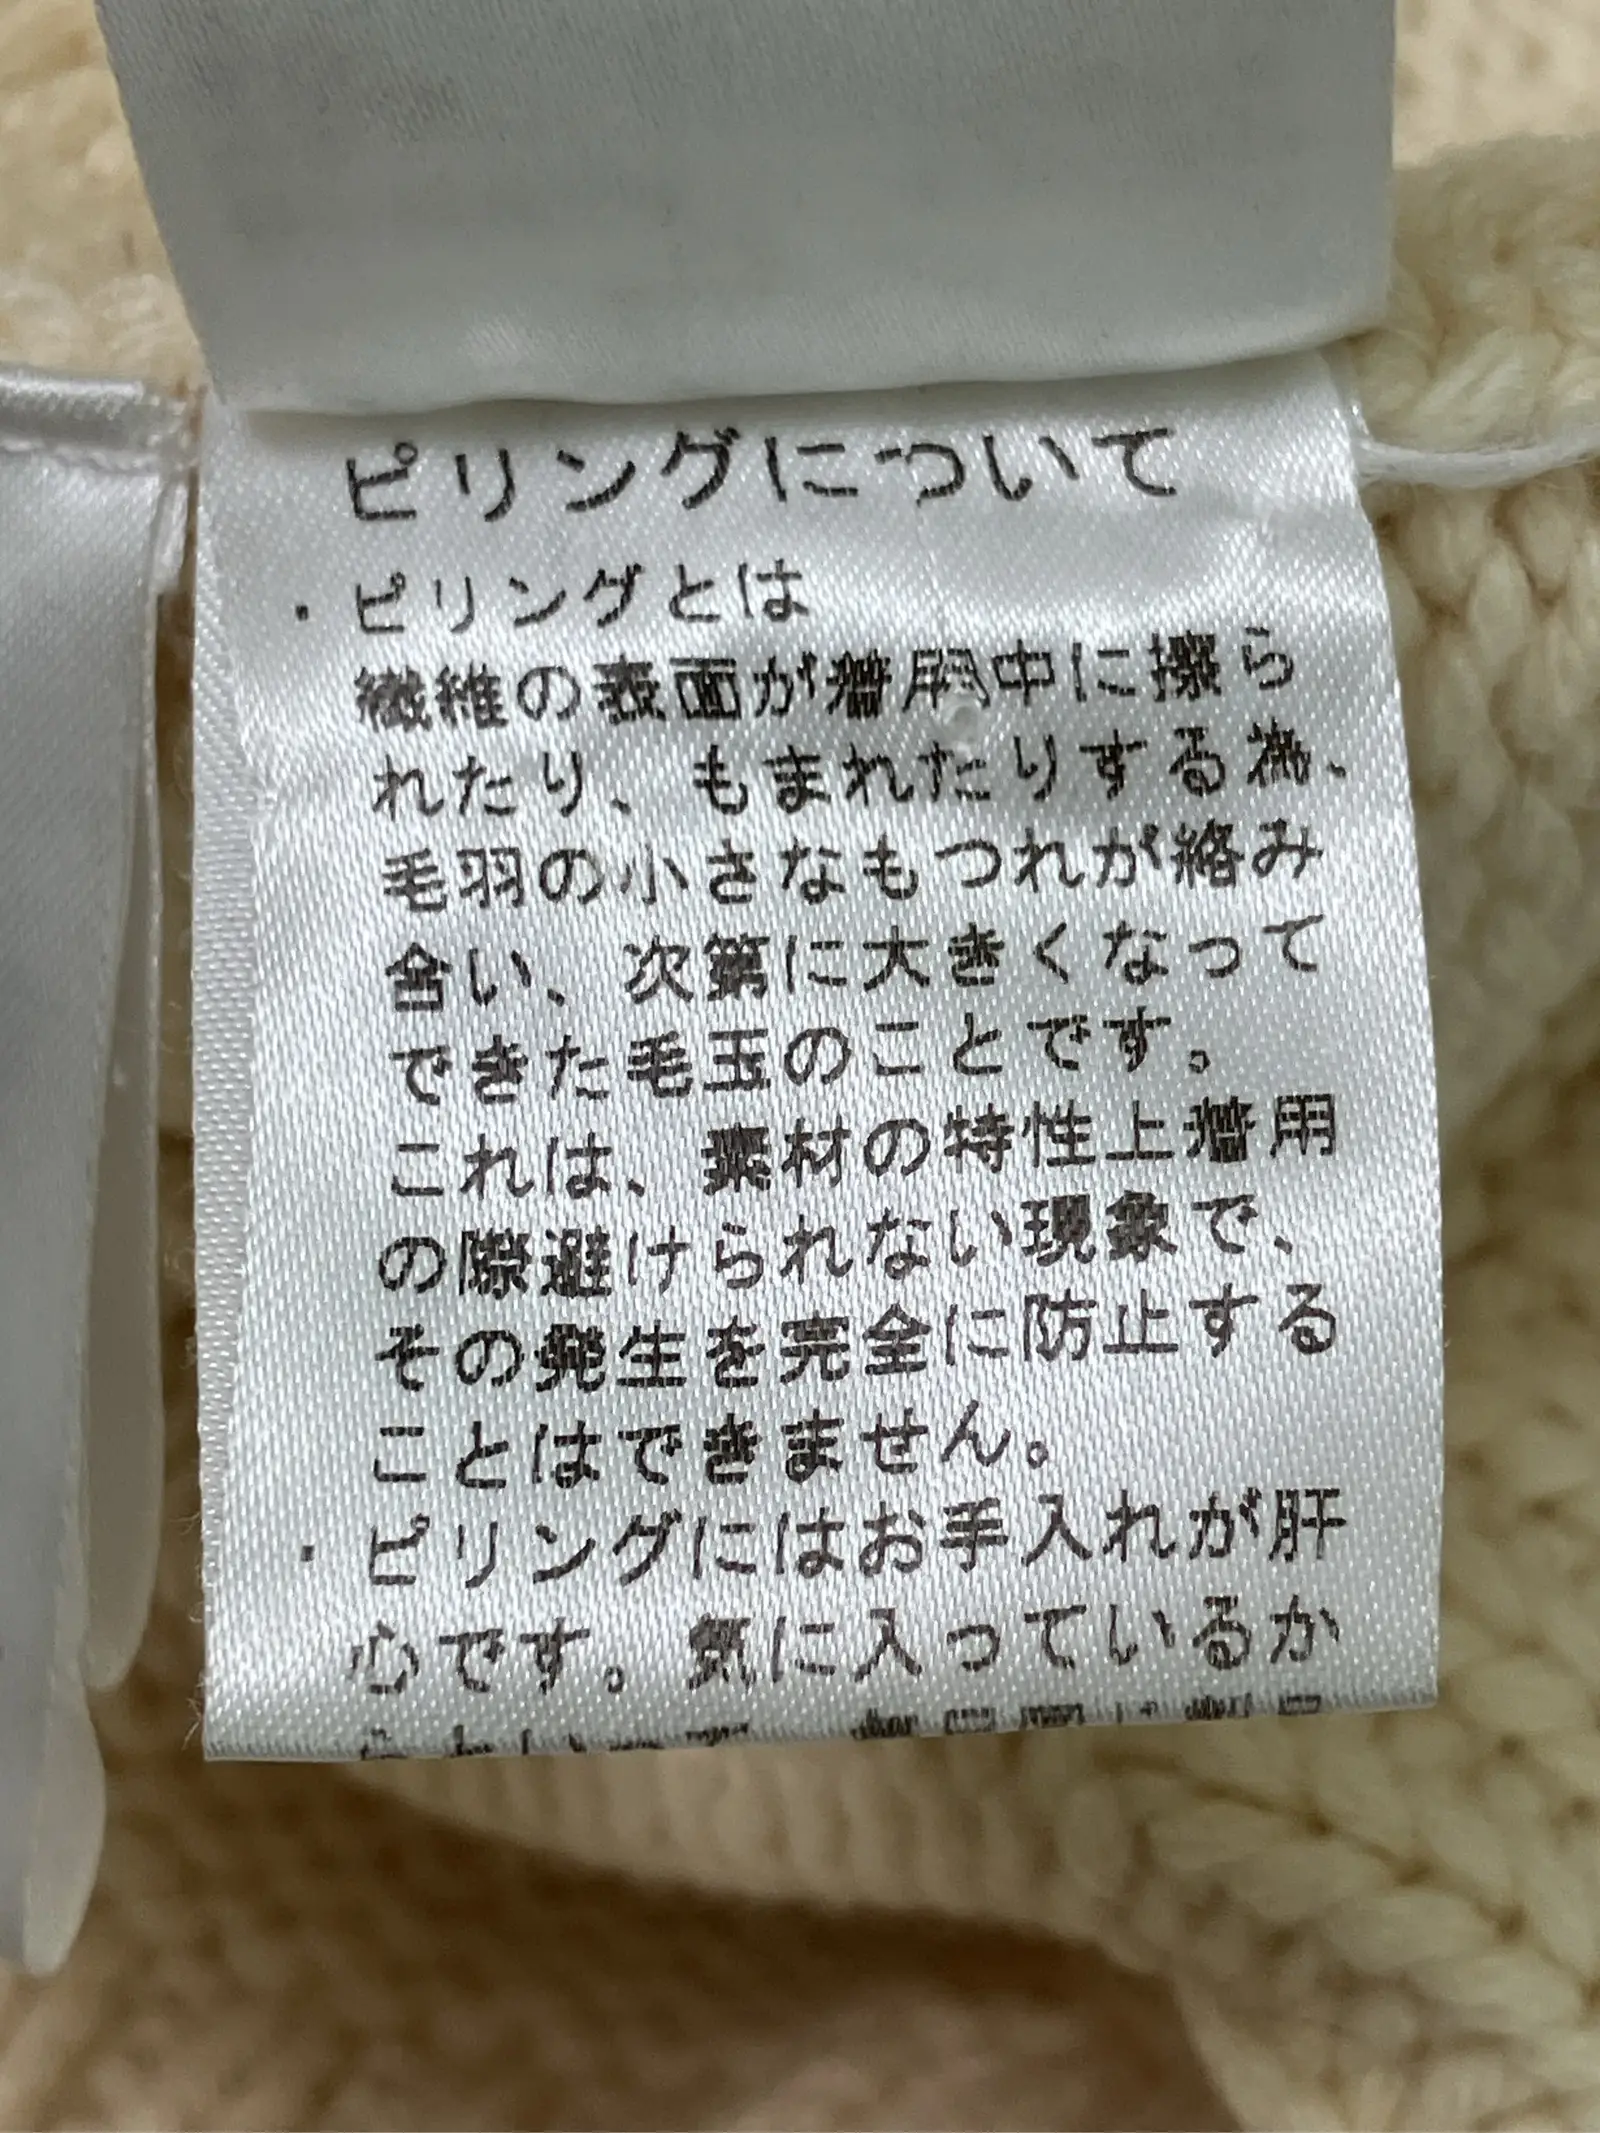 ピリングについて
・ピリングとは
繊維の表面が着用中に擦ら
れたり、もまれたりする為、
毛羽の小さなもつれが絡み
合い、次第に大きくなって
できた毛玉のことです。
これは、素材の特性上着用
の際避けられない現象で、
その発生を完全に防止する
ことはできません。
・ピリングにはお手入れが肝
心です。気に入っているか